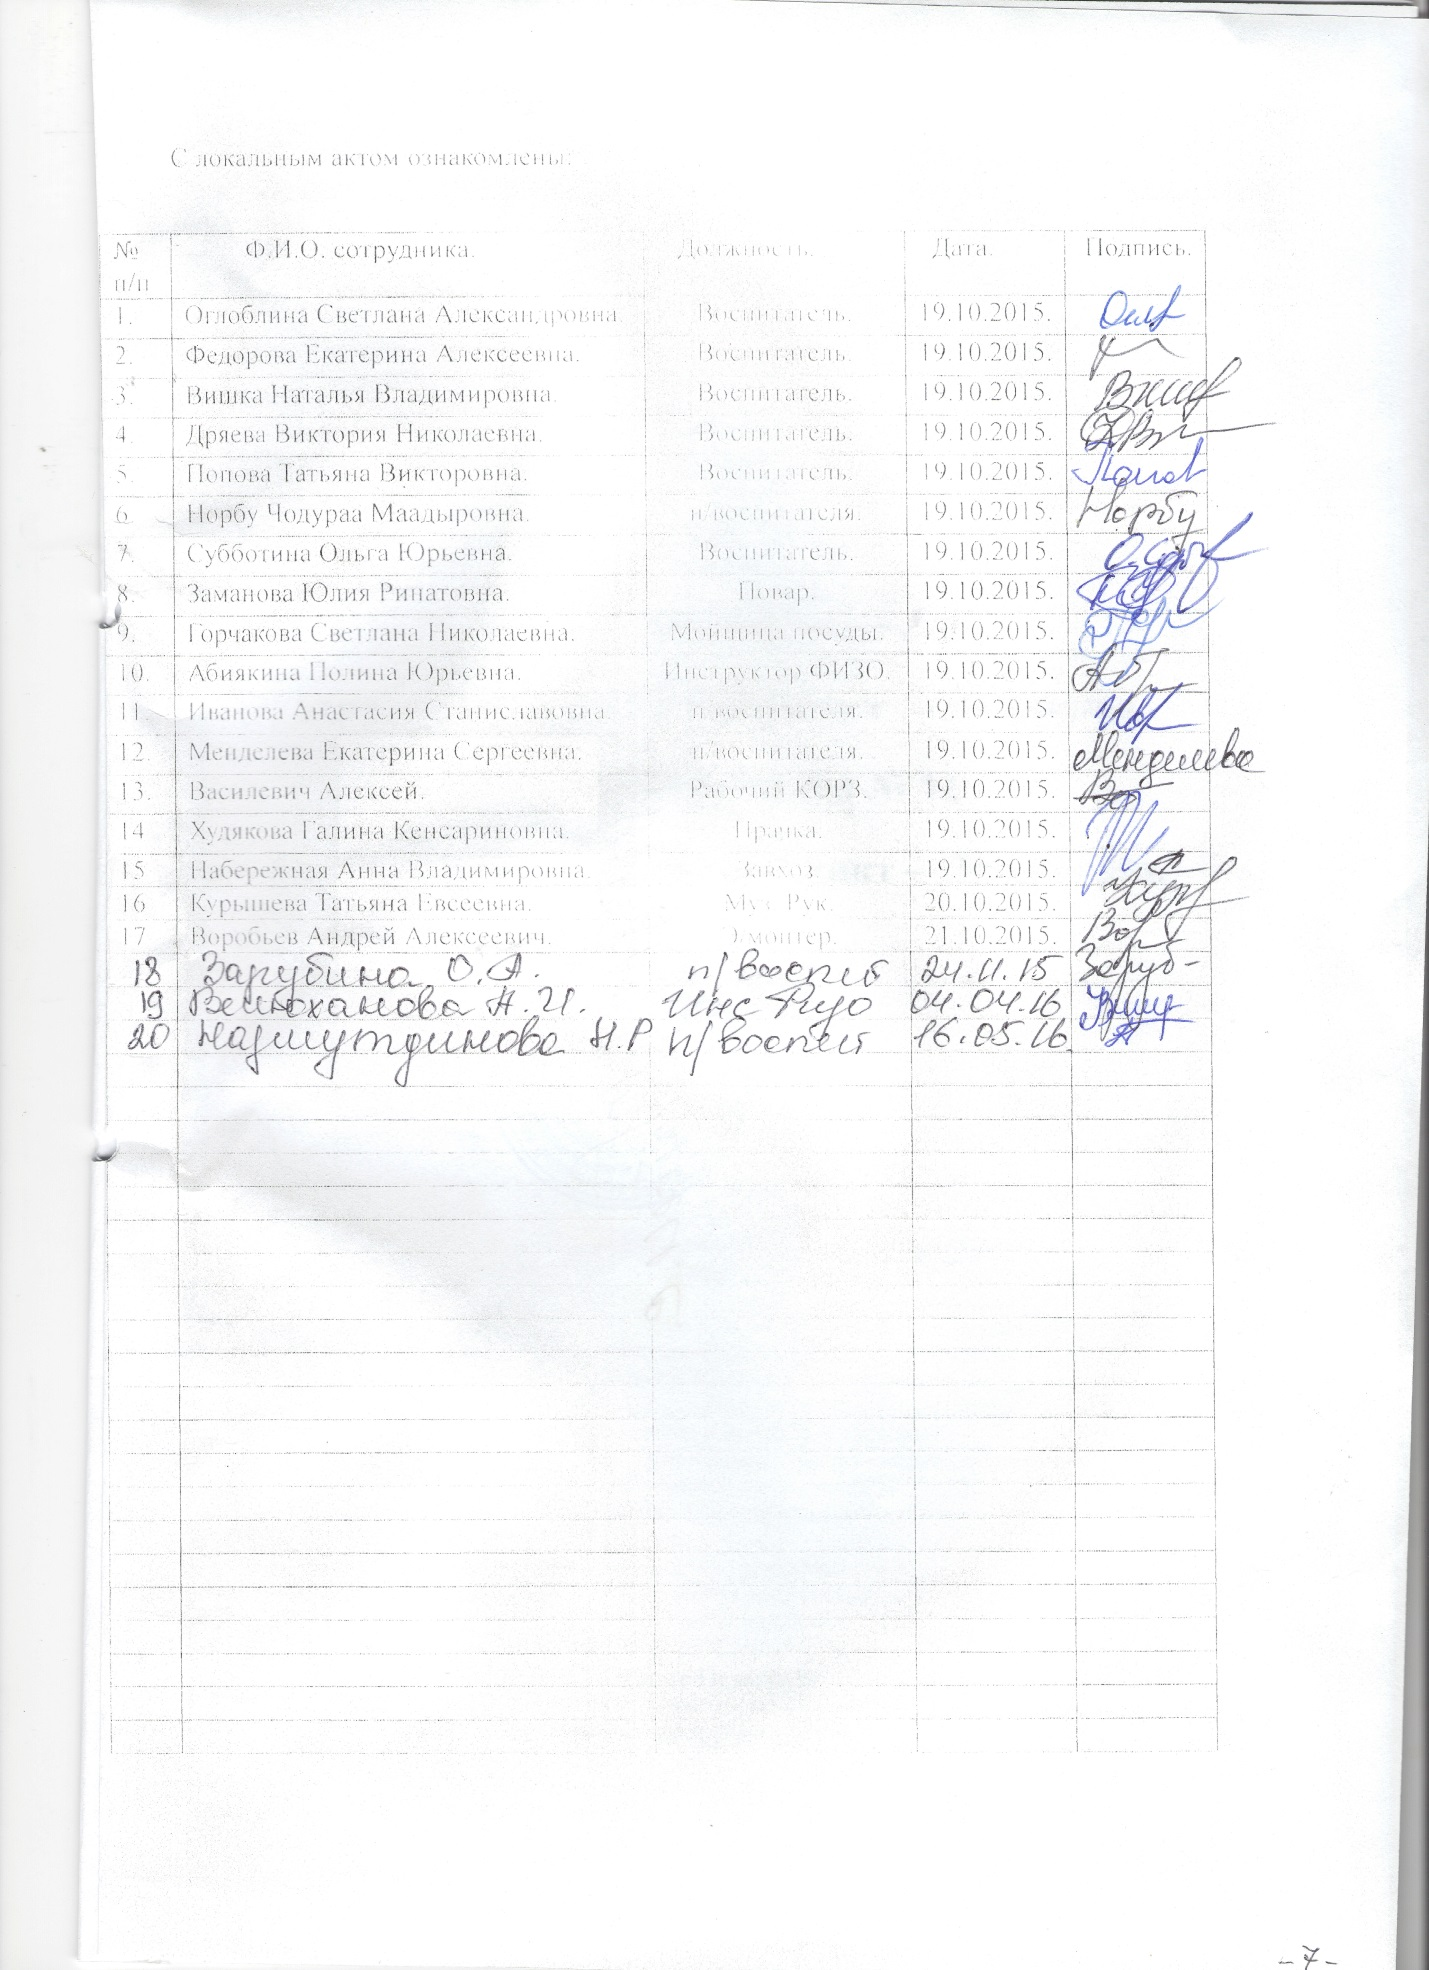 С локальным актом ознакомлены:
№ п/п Ф.И.О. сотрудника. Должность. Дата. Подпись.
1. Оглоблина Светлана Александровна. Воспитатель. 19.10.2015.
2. Федорова Екатерина Алексеевна. Воспитатель. 19.10.2015.
3. Вишка Наталья Владимировна. Воспитатель. 19.10.2015.
4. Дряева Виктория Николаевна. Воспитатель. 19.10.2015.
5. Попова Татьяна Викторовна. Воспитатель. 19.10.2015.
6. Норбу Чодураа Маадыровна. п/воспитателя. 19.10.2015. Норбу
7. Субботина Ольга Юрьевна. Воспитатель. 19.10.2015.
8. Заманова Юлия Ринатовна. Повар. 19.10.2015.
9. Горчакова Светлана Николаевна. Мойщица посуды. 19.10.2015.
10. Абиякина Полина Юрьевна. Инструктор ФИЗО. 19.10.2015.
11. Иванова Анастасия Станиславовна. п/воспитателя. 19.10.2015.
12. Менделева Екатерина Сергеевна. п/воспитателя. 19.10.2015. Менделева
13. Василевич Алексей. Рабочий КОРЗ. 19.10.2015.
14 Худякова Галина Кенсариновна. Прачка. 19.10.2015.
15 Набережная Анна Владимировна. Завхоз. 19.10.2015.
16 Курышева Татьяна Евсеевна. Муз. Рук. 20.10.2015.
17 Воробьев Андрей Алексеевич. Э/монтер. 21.10.2015.
18 Зарубина О.А. п/воспит 24.11.15 Заруб-
19 А.И. Инс 04.04.16
20 Нажмутдинова Н.Р п/воспит 16.05.16.
-7-